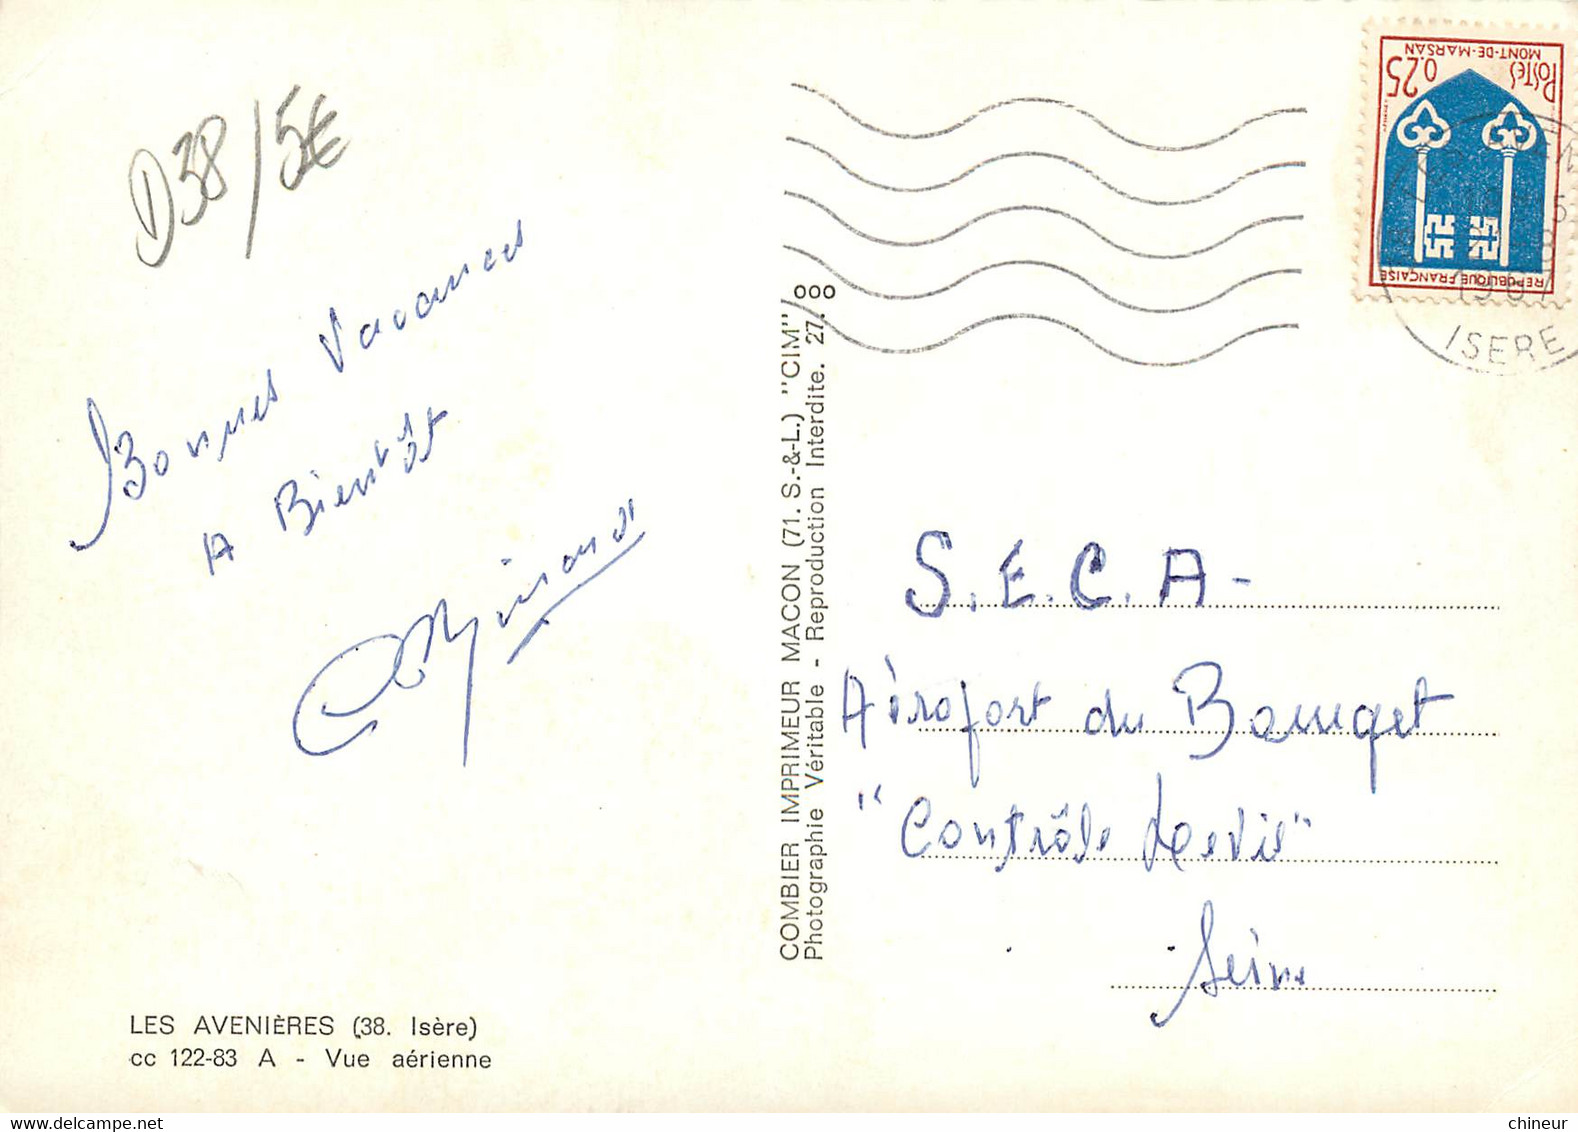 D38/5€
Bonnes Vacances
A Bientôt
LES AVENIÈRES (38. Isère)
cc 122-83 A - Vue aérienne
COMBIER IMPRIMEUR MACON (71. S.-&-L.) "CIM"
Photographie Véritable - Reproduction Interdite. 27.
000
POSTES 0.25
MONT-DE-MARSAN
RÉPUBLIQUE FRANÇAISE
1967
ISERE
S.E.C.A-
Aéroport du Bourget
"Contrôle
Seine
chineur